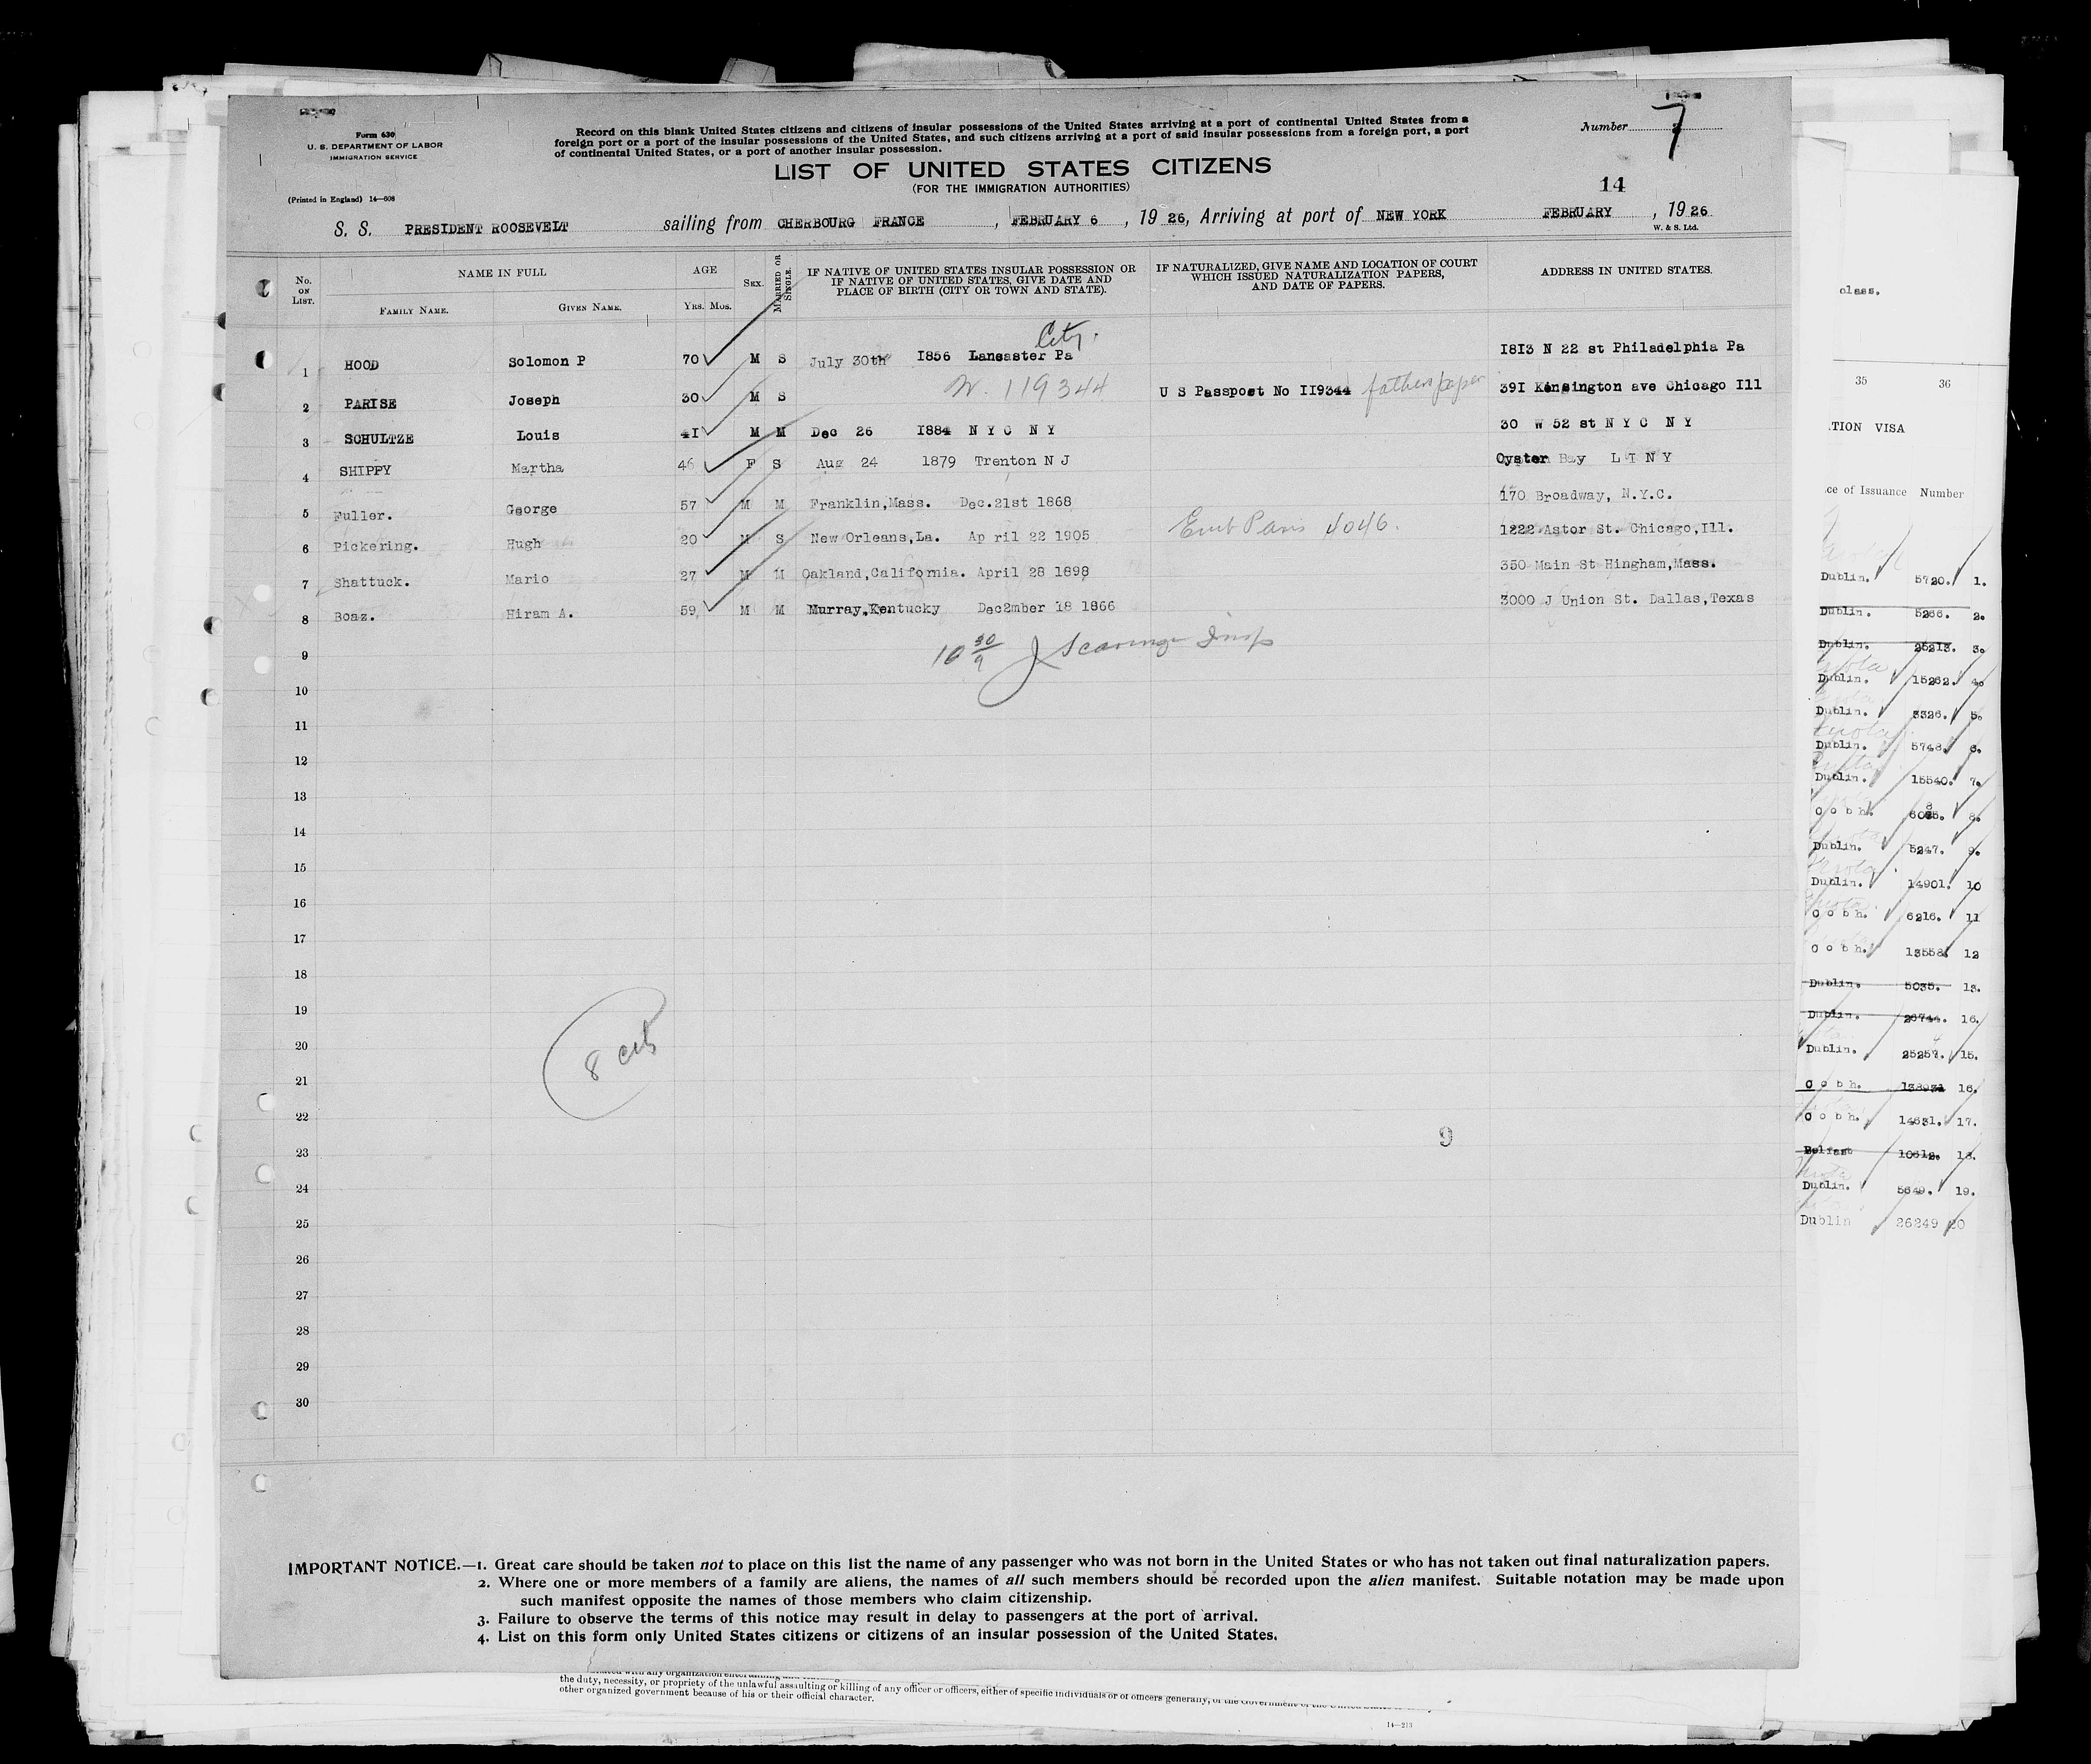 Form 630
U. S. DEPARTMENT OF LABOR
IMMIGRATION SERVICE
(Printed in England) 14—608
Record on this blank United States citizens and citizens of insular possessions of the United States arriving at a port of continental United States from a
foreign port or a port of the insular possessions of the United States, and such citizens arriving at a port of said insular possessions from a foreign port, a port
of continental United States, or a port of another insular possession.
Number 7
LIST OF UNITED STATES CITIZENS
(FOR THE IMMIGRATION AUTHORITIES)
14
S. S. PRESIDENT ROOSEVELT sailing from CHERBOURG FRANCE, FEBRUARY 6, 1926, Arriving at port of NEW YORK FEBRUARY, 1926
W. & S. Ltd.
No. ON LIST.
NAME IN FULL
FAMILY NAME. GIVEN NAME.
AGE
YRS. MOS.
SEX.
MARRIED OR SINGLE.
IF NATIVE OF UNITED STATES INSULAR POSSESSION OR
IF NATIVE OF UNITED STATES, GIVE DATE AND
PLACE OF BIRTH (CITY OR TOWN AND STATE).
IF NATURALIZED, GIVE NAME AND LOCATION OF COURT
WHICH ISSUED NATURALIZATION PAPERS,
AND DATE OF PAPERS.
ADDRESS IN UNITED STATES.
City.
1 HOOD Solomon P 70 M S July 30th 1856 Lancaster Pa 1813 N 22 st Philadelphia Pa
2 PARISE Joseph 30 M S N. 119344 U S Passport No II9344 fathers paper 39I Kensington ave Chicago Ill
3 SCHULTZE Louis 4I M M Dec 26 I884 N Y C N Y 30 W 52 st N Y C N Y
4 SHIPPY Martha 46 F S Aug 24 1879 Trenton N J Oyster Bay L I N Y
5 Fuller. George 57 M M Franklin,Mass. Dec.21st 1868 170 Broadway, N.Y.C.
6 Pickering. Hugh 20 M S New Orleans,La. Ap ril 22 1905 4046. 1222 Astor St. Chicago,Ill.
7 Shattuck. Mario 27 M M Oakland,California. April 28 1898 350 Main St Hingham,Mass.
8 Boaz. Hiram A. 59 M M Murray,Kentucky Dec2mber 18 1866 3000 J Union St. Dallas,Texas
9
10
11
12
13
14
15
16
17
18
19
20
21
22
23
24
25
26
27
28
29
30
8 cits
9
IMPORTANT NOTICE.—1. Great care should be taken not to place on this list the name of any passenger who was not born in the United States or who has not taken out final naturalization papers.
2. Where one or more members of a family are aliens, the names of all such members should be recorded upon the alien manifest. Suitable notation may be made upon
such manifest opposite the names of those members who claim citizenship.
3. Failure to observe the terms of this notice may result in delay to passengers at the port of arrival.
4. List on this form only United States citizens or citizens of an insular possession of the United States.
the duty, necessity, or propriety of the unlawful assaulting or killing of any officer or officers, either of specific individuals or of officers generally, of the Government of the United States
other organized government because of his or their official character.
14—213
class.
35 36
TION VISA
ce of Issuance Number
Dublin. 5720. 1.
Dublin. 5266. 2.
Dublin. 25213. 3.
Dublin. 15262. 4.
Dublin. 3326. 5.
Dublin. 5748. 6.
Dublin. 15540. 7.
C o b h. 8.
Dublin. 5247. 9.
Dublin. 14901. 10
C o b h. 6216. 11
C o b h. 13558 12
Dublin. 5035. 13.
Dublin. 26744. 16.
Dublin. 25257. 15.
C o b h. 16.
C o b h. 14631. 17.
Belfast 10612. 18.
Dublin. 5649. 19.
Dublin 26249 20